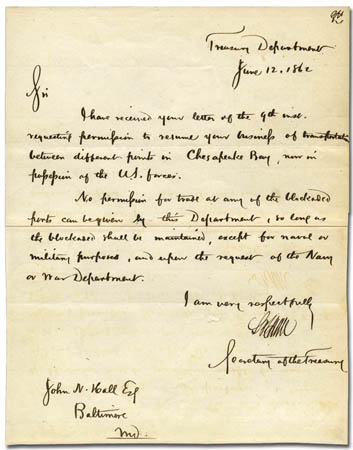 Treasury Department
June 12, 1862
Sir
I have received your letter of the 9th inst.
requesting permission to resume your business of transportation
between different points in Chesapeake Bay, now in
possession of the U.S. forces.
No permission for trade at any of the blockaded
ports can be given by this Department, so long as
the blockade shall be maintained, except for naval or
military purposes, and upon the request of the Navy
or War Department.
I am very respectfully
Secretary of the Treasury
John N. Hall Esq
Baltimore
Md.